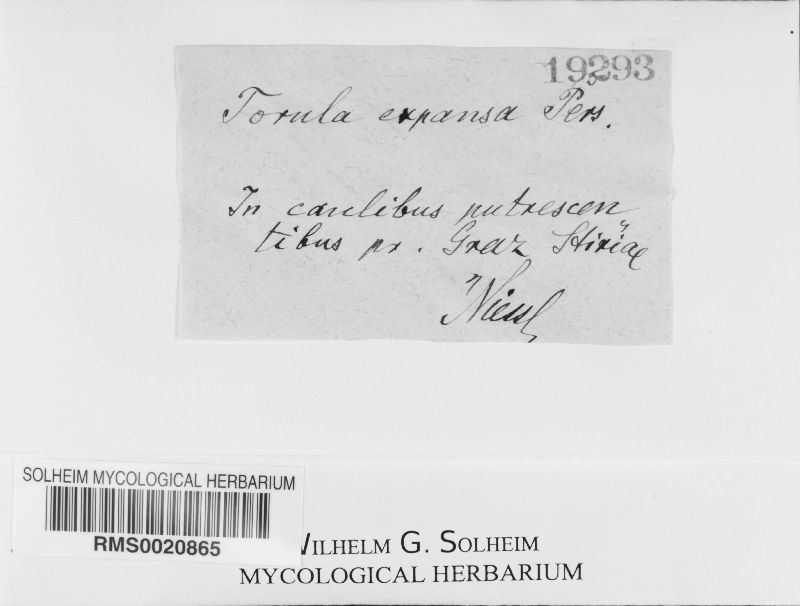 19293
Torula expansa Pers.
In caulibus putrescen
tibus pr. Graz Stiriae
Niessl
SOLHEIM MYCOLOGICAL HERBARIUM
RMS0020865
WILHELM G. SOLHEIM
MYCOLOGICAL HERBARIUM